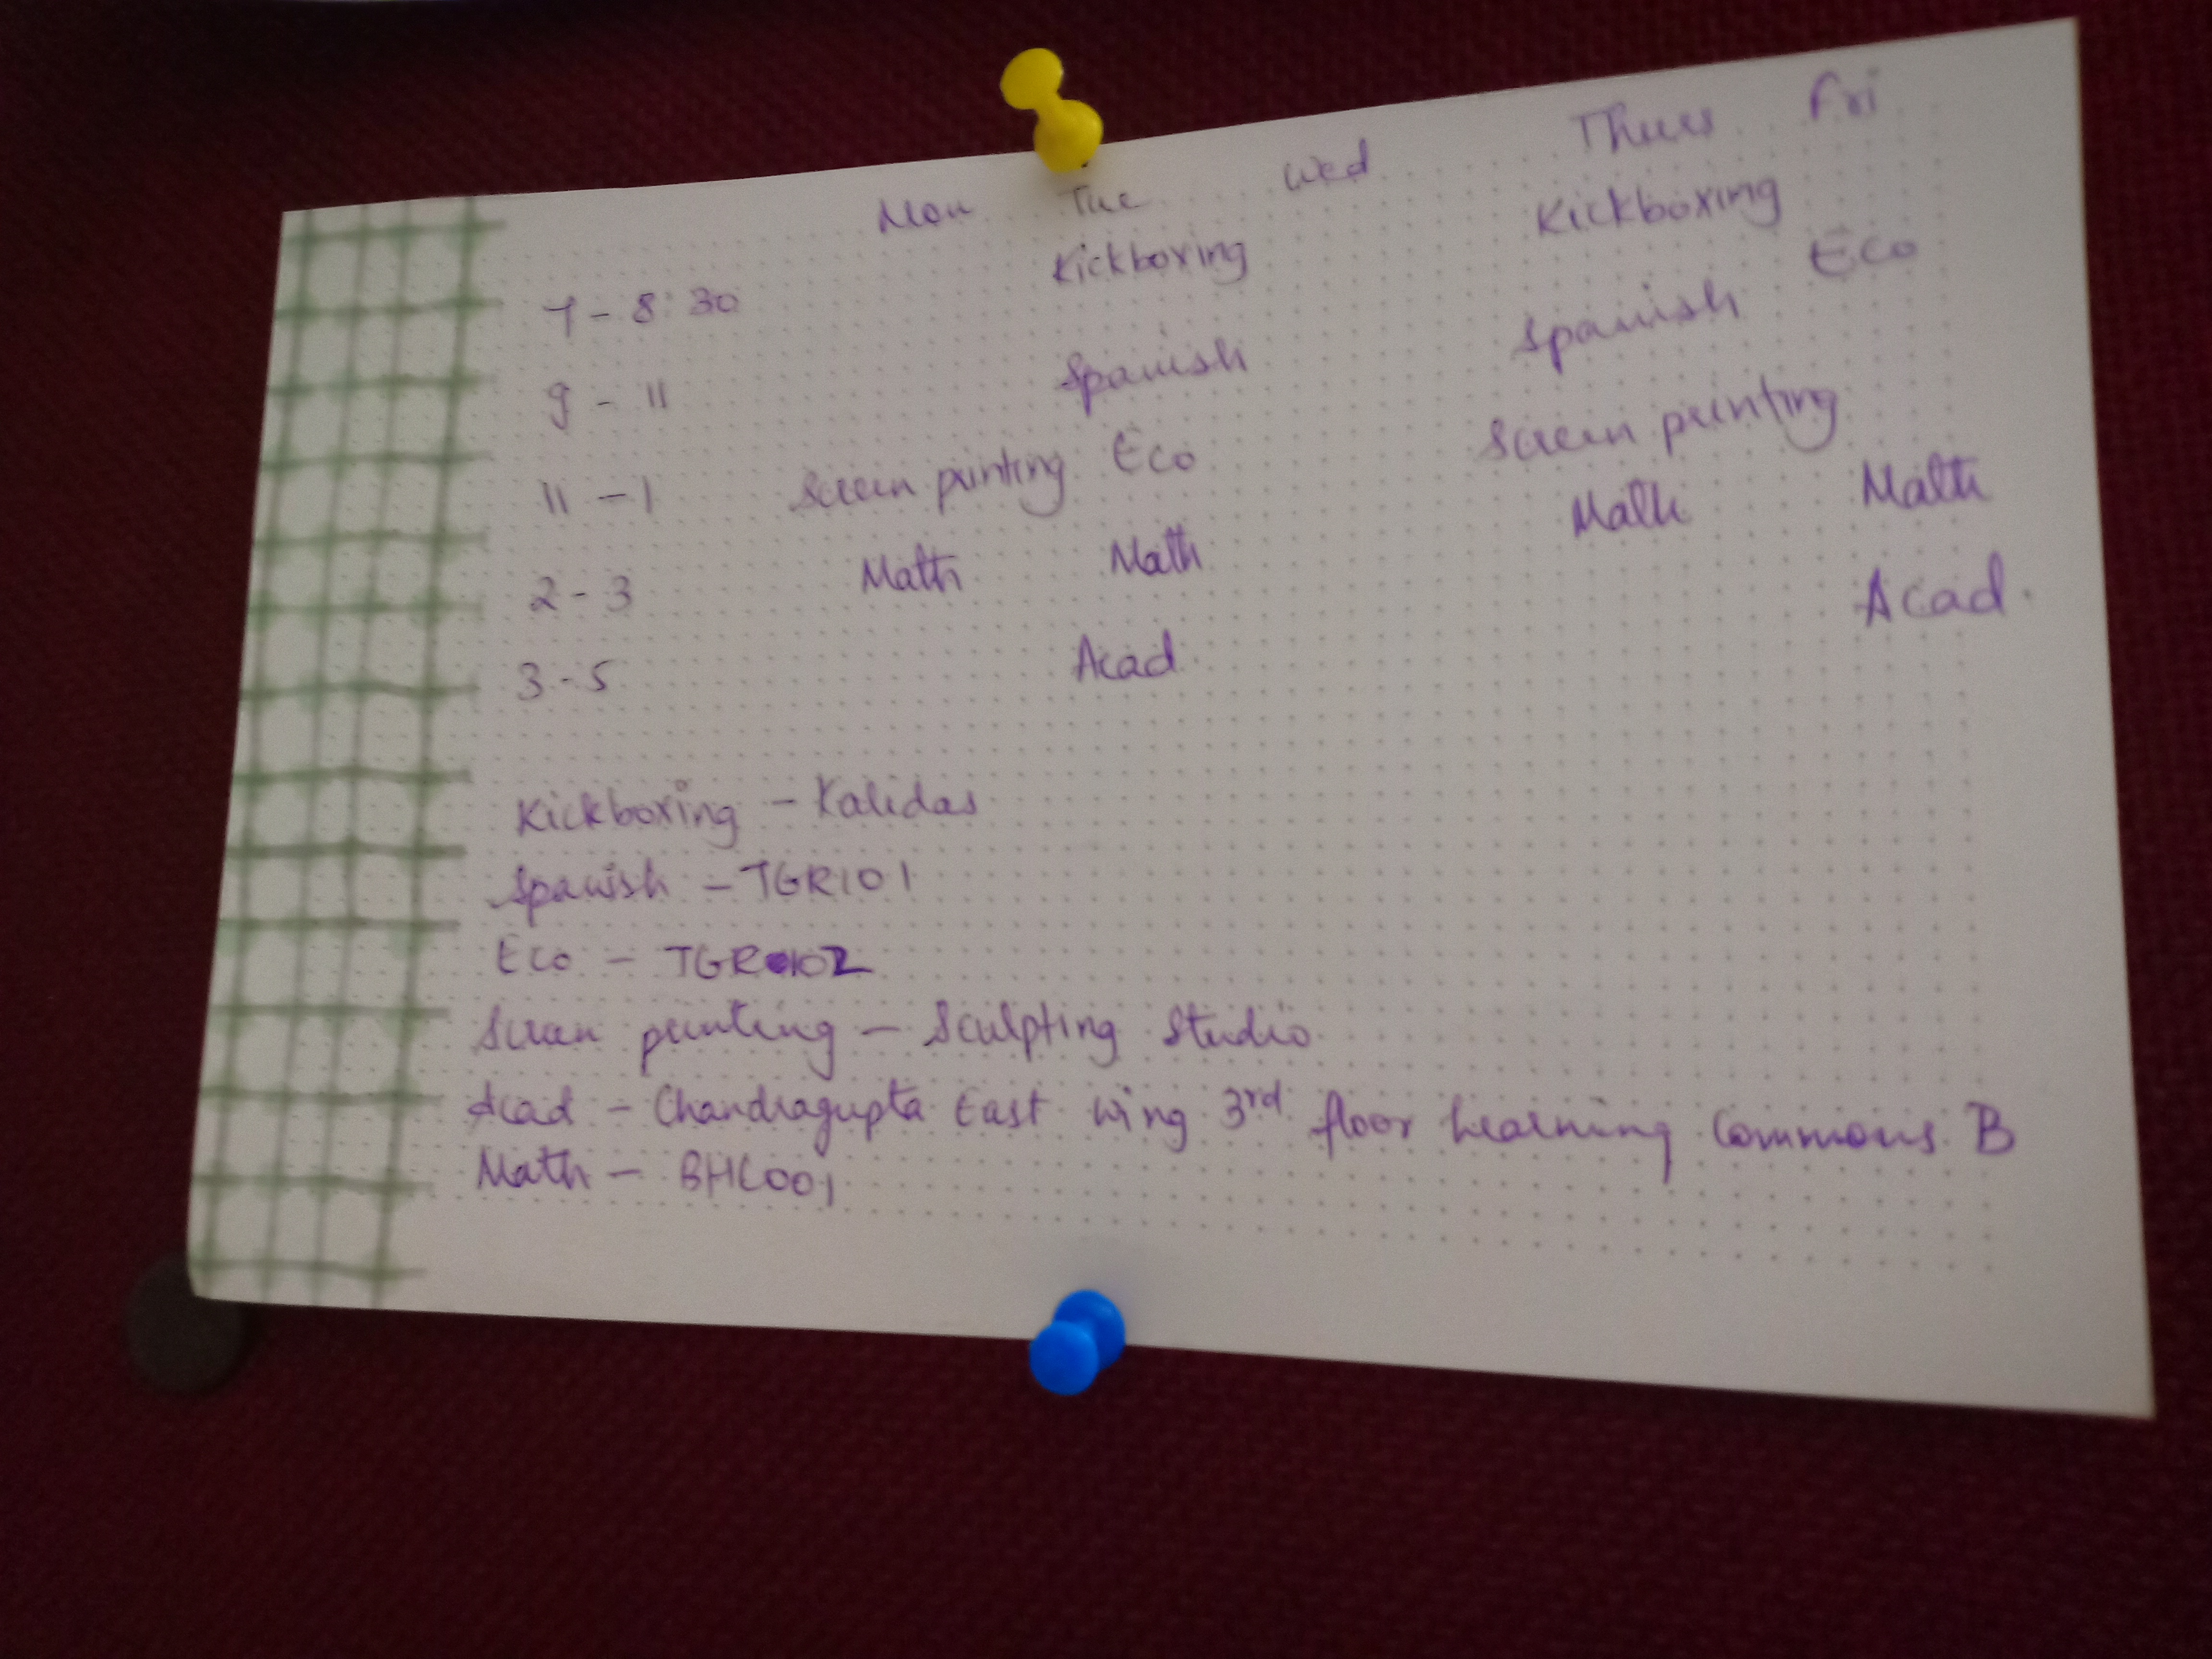 Mon Tue Wed Thurs Fri
7 - 8:30 Kickboxing Kickboxing
9 - 11 Spanish Spanish Eco
11 - 1 Screen printing Eco Screen printing
2 - 3 Math Math Math Math
3 - 5 Acad Acad.
Kickboxing - Kalidas
Spanish - TGR101
Eco - TGR102
Screen printing - Sculpting Studio
Acad - Chandragupta East wing 3rd floor Learning Commons B
Math - BHC001